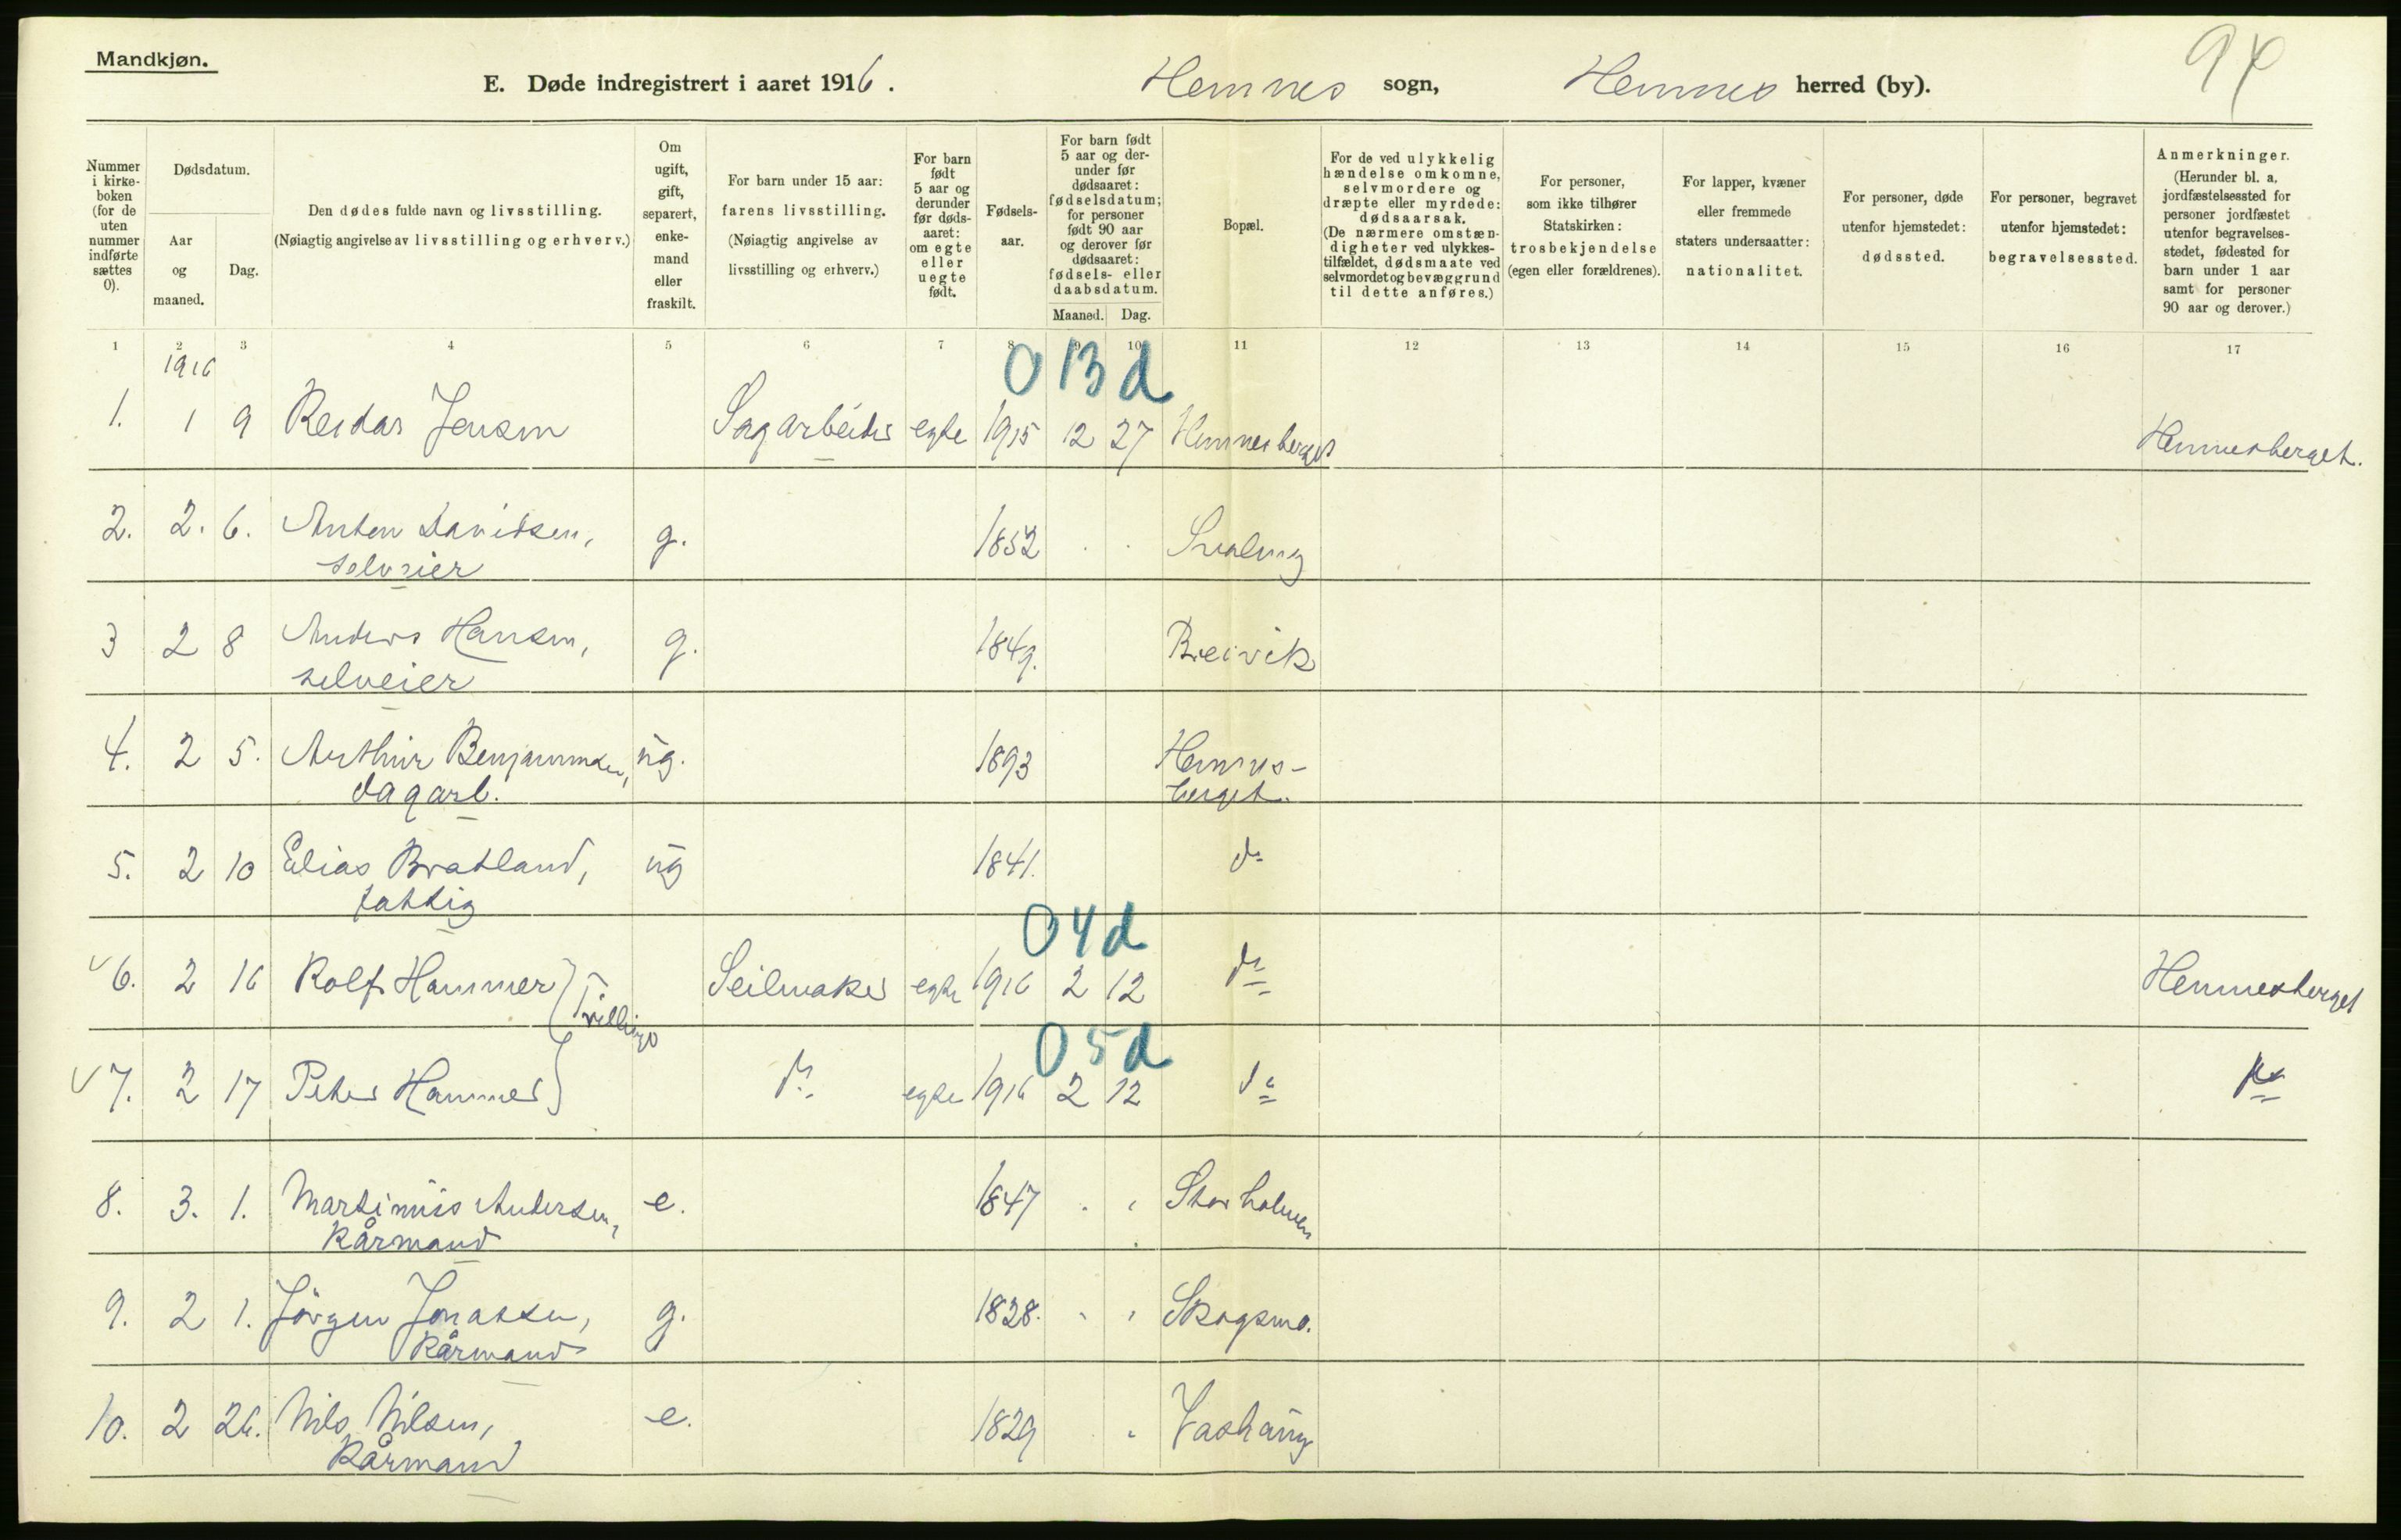 Mandkjøn.
E. Døde indregistrert i aaret 1916. Hemnes sogn, Hemnes herred (by).
94
Nummer i kirke-boken (for de uten nummer indførte sættes 0).
Dødsdatum.
Aar og maaned.
Dag.
Den dødes fulde navn og livsstilling.
(Nøiagtig angivelse av livsstilling og erhverv.)
Om ugift, gift, separert, enke-mand eller fraskilt.
For barn under 15 aar: farens livsstilling. (Nøiagtig angivelse av livsstilling og erhverv.)
For barn født 5 aar og derunder før døds-aaret: om egte eller uegte født.
Fødsels-aar.
For barn født 5 aar og der-under før dødsaaret: fødselsdatum; for personer født 90 aar og derover før dødsaaret: fødsels- eller daabsdatum.
Maaned. Dag.
Bopæl.
For de ved ulykkelig hændelse omkomne, selvmordere og dræpte eller myrdede: dødsaarsak. (De nærmere omstæn-digheter ved ulykkes-tilfældet, dødsmaate ved selvmordet og bevæggrund til dette anføres.)
For personer, som ikke tilhører Statskirken: trosbekjendelse (egen eller forældrenes).
For lapper, kvæner eller fremmede staters undersaatter: nationalitet.
For personer, døde utenfor hjemstedet: dødssted.
For personer, begravet utenfor hjemstedet: begravelsessted.
Anmerkninger. (Herunder bl. a. jordfæstelsessted for personer jordfæstet utenfor begravelses-stedet, fødested for barn under 1 aar samt for personer 90 aar og derover.)
1 2 3 4 5 6 7 8 9 10 11 12 13 14 15 16 17
1916
0 13 d
1. 1 9 Reidar Jensen Sagarbeider egte 1915 12 27 Hemnesberget Hemnesberget.
2. 2. 6. Anton Davidsen, g. 1852
selveier
3 2 8 Anders Hansen, g. 1849. Breivik
selveier
4. 2 5. Arthur Benjaminsen, ug. 1893 Hemnes-
dagarb. berget.
5. 2 10 Elias Bratland, ug 1841. do
fattig
0 4 d
6. 2 16 Rolf Hammer Seilmaker egte 1916 2 12 do Hemnesberget
Tvillinger
0 5 d
7. 2 17 Peter Hammer do egte 1916 2 12 do do
8. 3. 1. Martinius Andersen, e. 1847 Storholmen
Kårmand
9. 2 1. Jörgen Jonassen, g. 1828. Skogsmo.
Kårmand
10. 2 26. Nils Nilsen, e. 1829
Kårmand